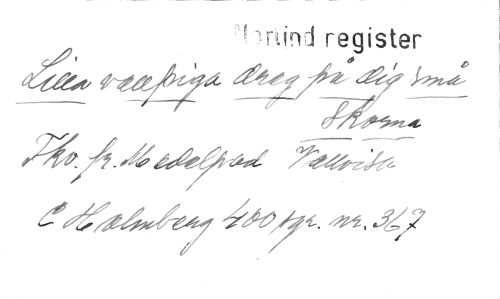 Norlind register
Lilla vallpiga drag på dig små
skorna
Fkv. fr. Medelpad Vallvisa
C Holmberg 400 sgr. nr. 367